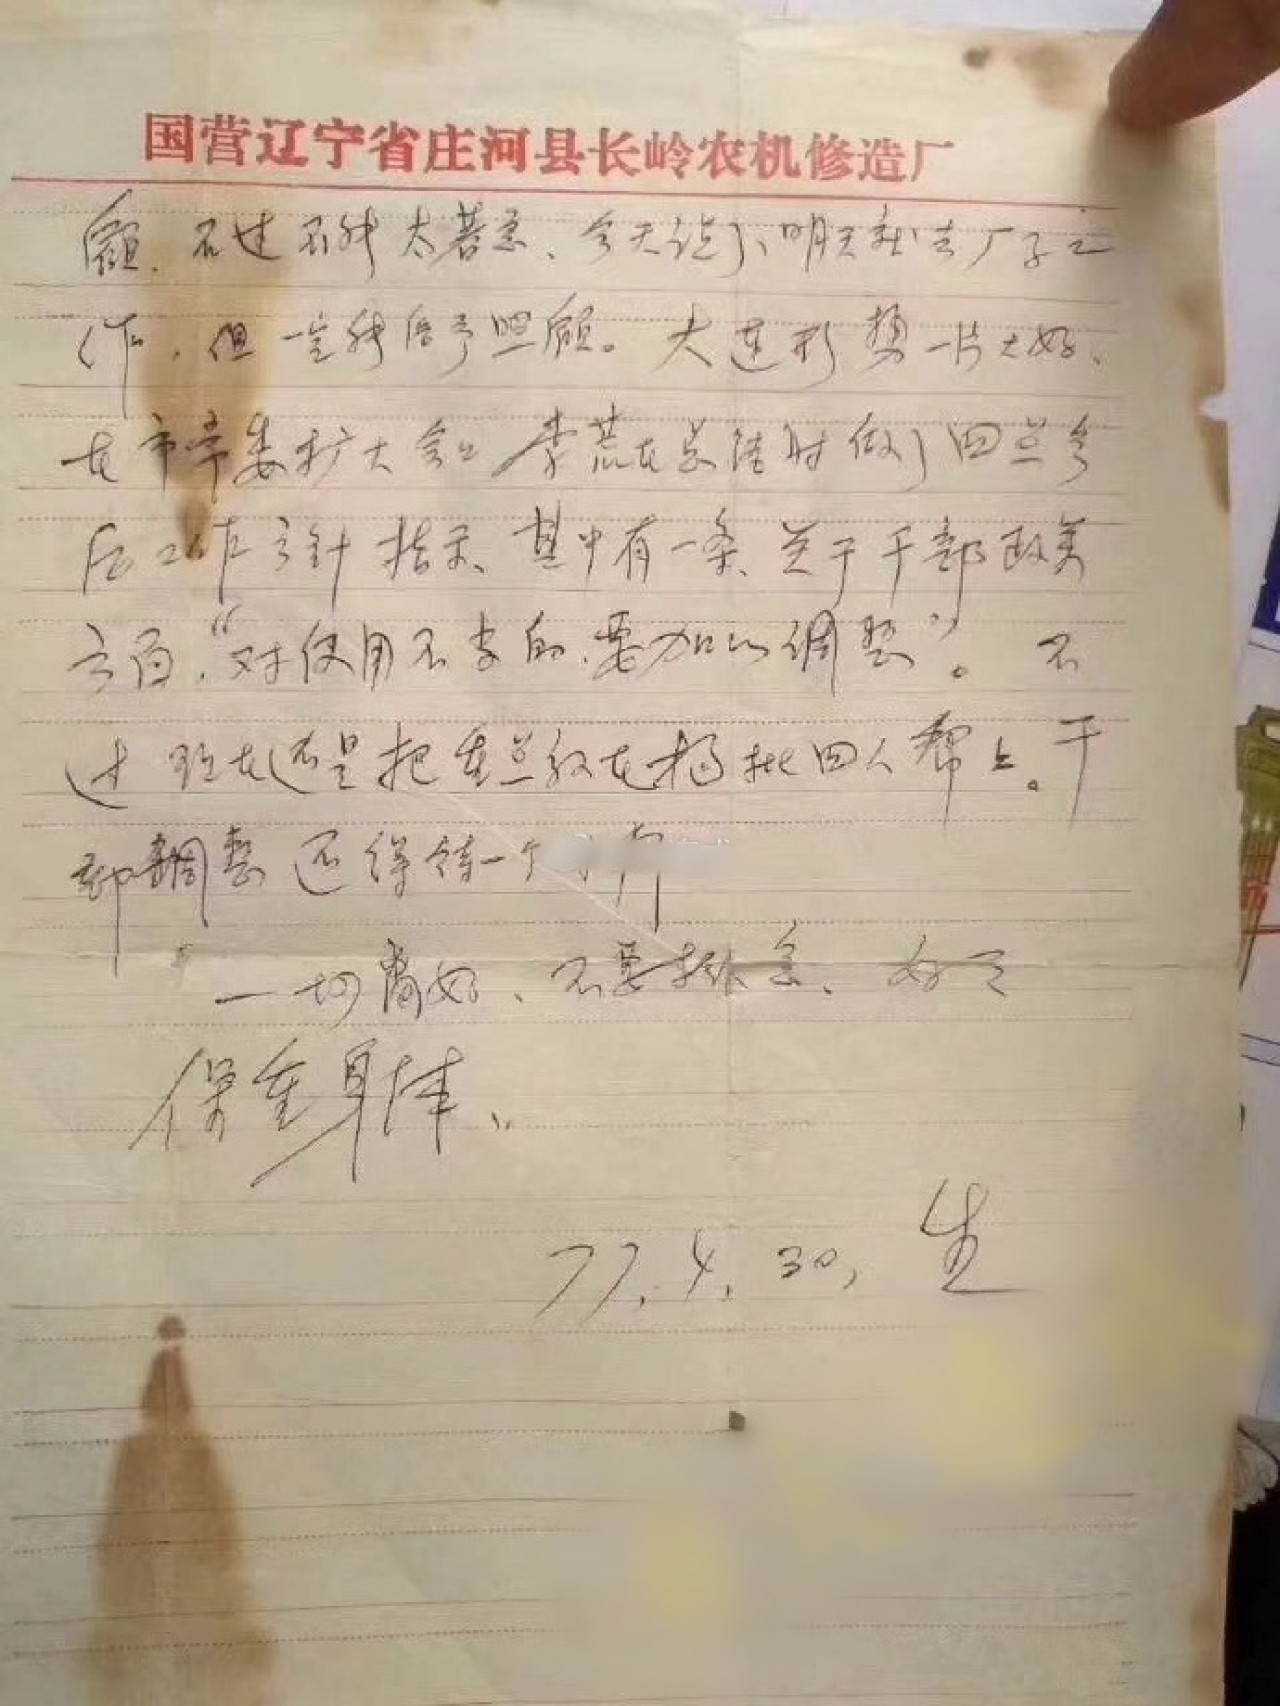 国营辽宁省庄河县长岭农机修造厂
顾、不过不能太着急、今天说了、明天就去厂子工
作，但一定能给予照顾。大连形势一片大好、
在市常委扩大会上李荒在总结时做了四点今
后工作方针指示、其中有一条、关于干部政策
方面，“对使用不当的、要加以调整”。不
过现在还是把重点放在揭批四人帮上。干
部调整还得待一个
一切都好、不要挂念、好了
保重身体、
77.4.30, 生